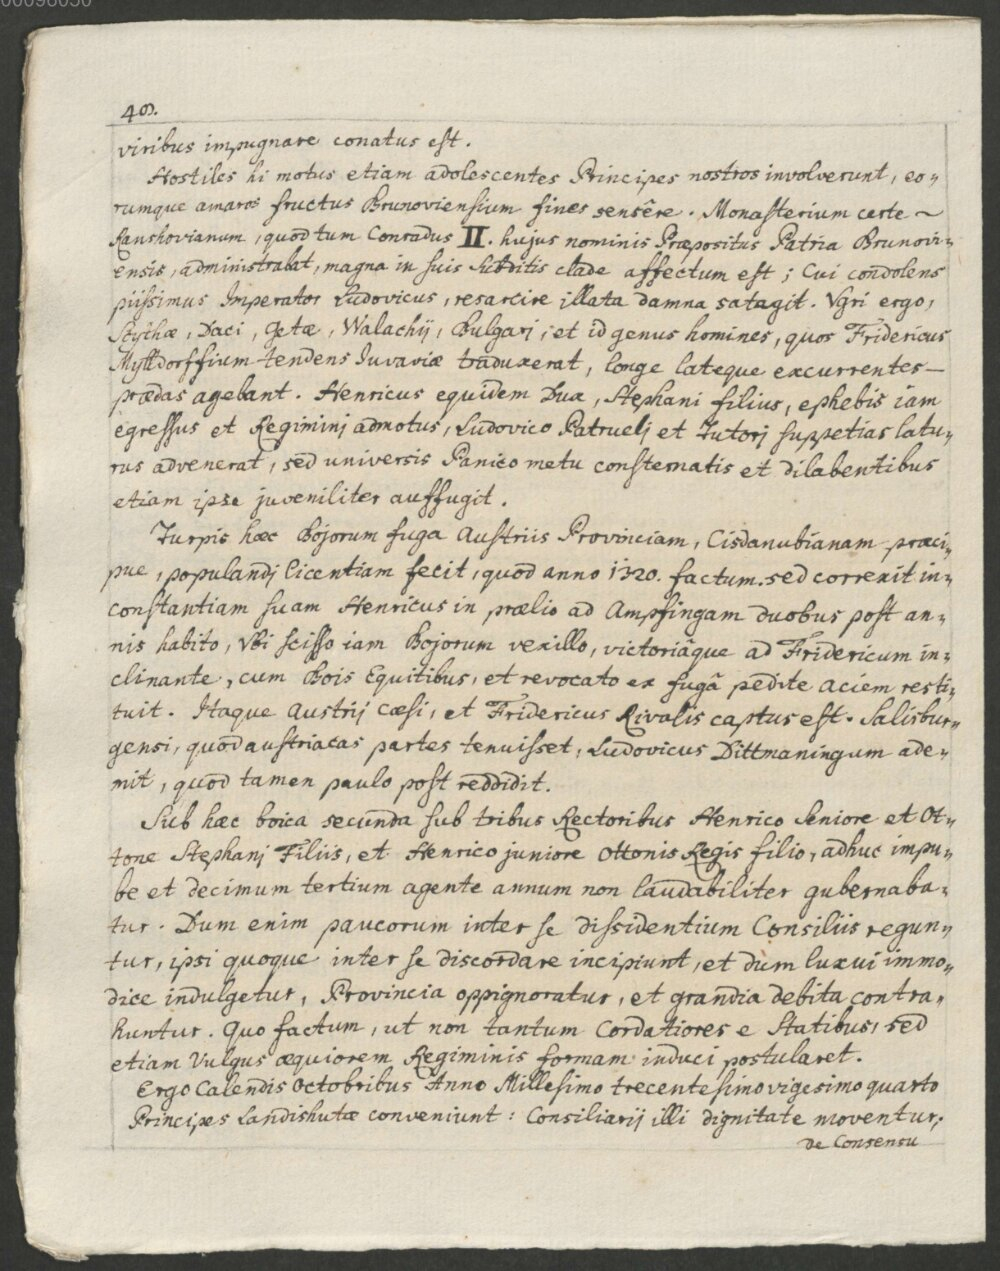 48.
viribus impugnare conatus est.
Hostiles hi motus etiam adolescentes Principes nostros involverunt, eo„
rumque amaros fructus Brunoviensium fines sensêre. Monasterium certe ~
Ranshovianum, quod tum Conradus II. hujus nominis Præpositus Patria Brunovi„
ensis, administrabat, magna in suis Subditis clade affectum est; Cui condolens
piissimus Imperator Ludovicus, resarcire illata damna satagit. Vgri ergo,
Scythæ, Daci, Getæ, Walachij, Bulgarj, et id genus homines, quos Fridericus
Mylldorffium tendens Iuvaviæ traduxerat, longe lateque excurrentes—
prædas agebant. Henricus equidem Dux, Stephani filius, ephebis iam
egressus et Regiminj admotus, Ludovico Patruelj et Tutorj suppetias latu„
rus advenerat, sed universis Panico metu consternatis et dilabentibus
etiam ipse juveniliter auffugit.
Turpis hæc Bojorum fuga Austriis Provinciam, Cisdanubianam præci„
pue, populandj licentiam fecit, quod anno 1320. factum. sed correxit in„
constantiam suam Henricus in prælio ad Ampfingam duobus post an„
nis habito, Vbi scisso iam Bojorum vexillo, victoriâque ad Fridericum in„
clinante, cum Bois Equitibus, et revocato ex fugâ pedite aciem resti„
tuit. Itaque Austrij cæsi, et Fridericus Rivalis captus est. Salisbur„
gensi, quod austriacas partes tenuisset, Ludovicus Dittmaningum ade„
mit, quod tamen paulo post reddidit.
Sub hæc boica secunda sub tribus Rectoribus Henrico Seniore et Ot„
tone Stephanj Filiis, et Henrico juniore Ottonis Regis filio, adhuc impu„
be et decimum tertium agente annum non laudabiliter gubernaba„
tur. Dum enim paucorum inter se dissidentium Consiliis regun„
tur, ipsi quoque inter se discordare incipiunt, et dum luxui immo„
dice indulgetur, Provincia oppignoratur, et grandia debita contra„
huntur. Quo factum, ut non tantum Cordatiores e Statibus, sed
etiam Vulgus æquiorem Regiminis formam induci postularet.
Ergo Calendis Octobribus Anno Millesimo trecentesimo vigesimo quarto
Principes Landishutæ conveniunt: Consiliarij illi dignitate moventur,
de Consensu